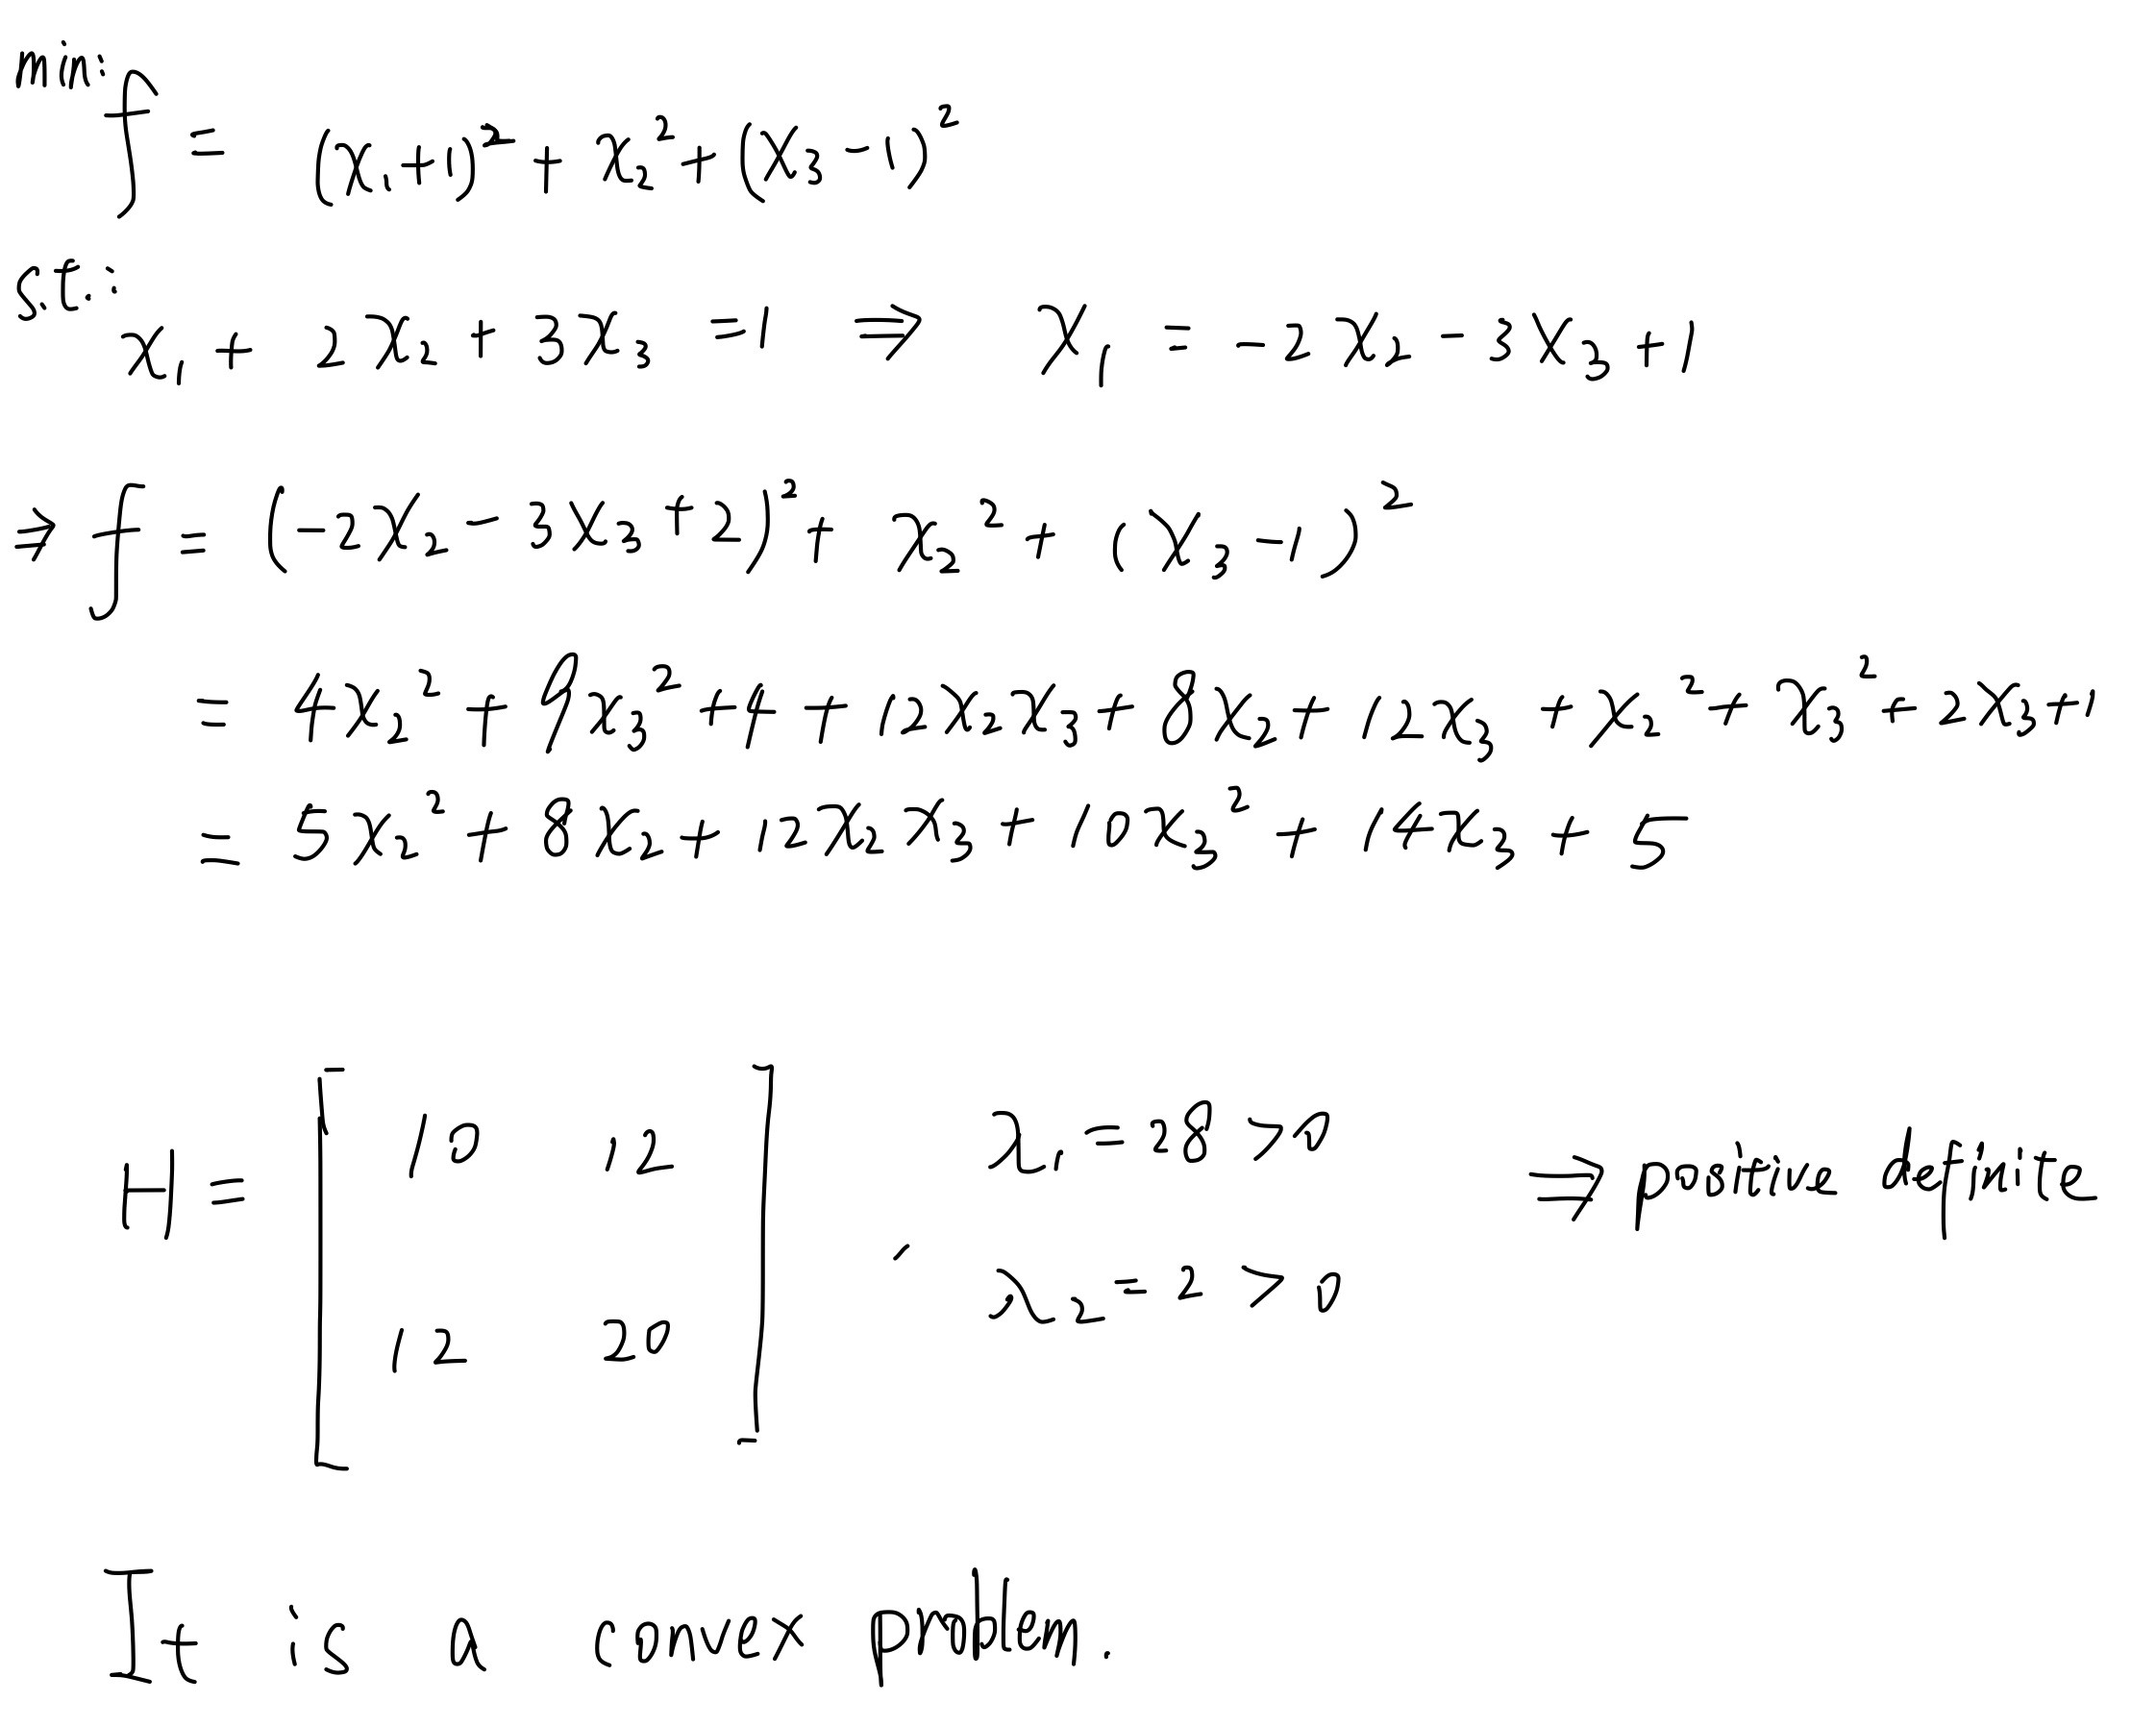 min:
f = (x₁+1)² + x₂² + (x₃-1)²
s.t.:
x₁ + 2x₂ + 3x₃ = 1 ⇒ x₁ = -2x₂ - 3x₃ + 1
⇒ f = (-2x₂ - 3x₃ + 2)² + x₂² + (x₃ - 1)²
= 4x₂² + 9x₃² + 4 + 12x₂x₃ + 8x₂ + 12x₃ + x₂² + x₃² + 2x₃ + 1
= 5x₂² + 8x₂ + 12x₂x₃ + 10x₃² + 14x₃ + 5
H = [ 10 12 λ₁ = 28 > 0 ⇒ positive definite
12 20 ] λ₂ = 2 > 0
It is a convex problem.